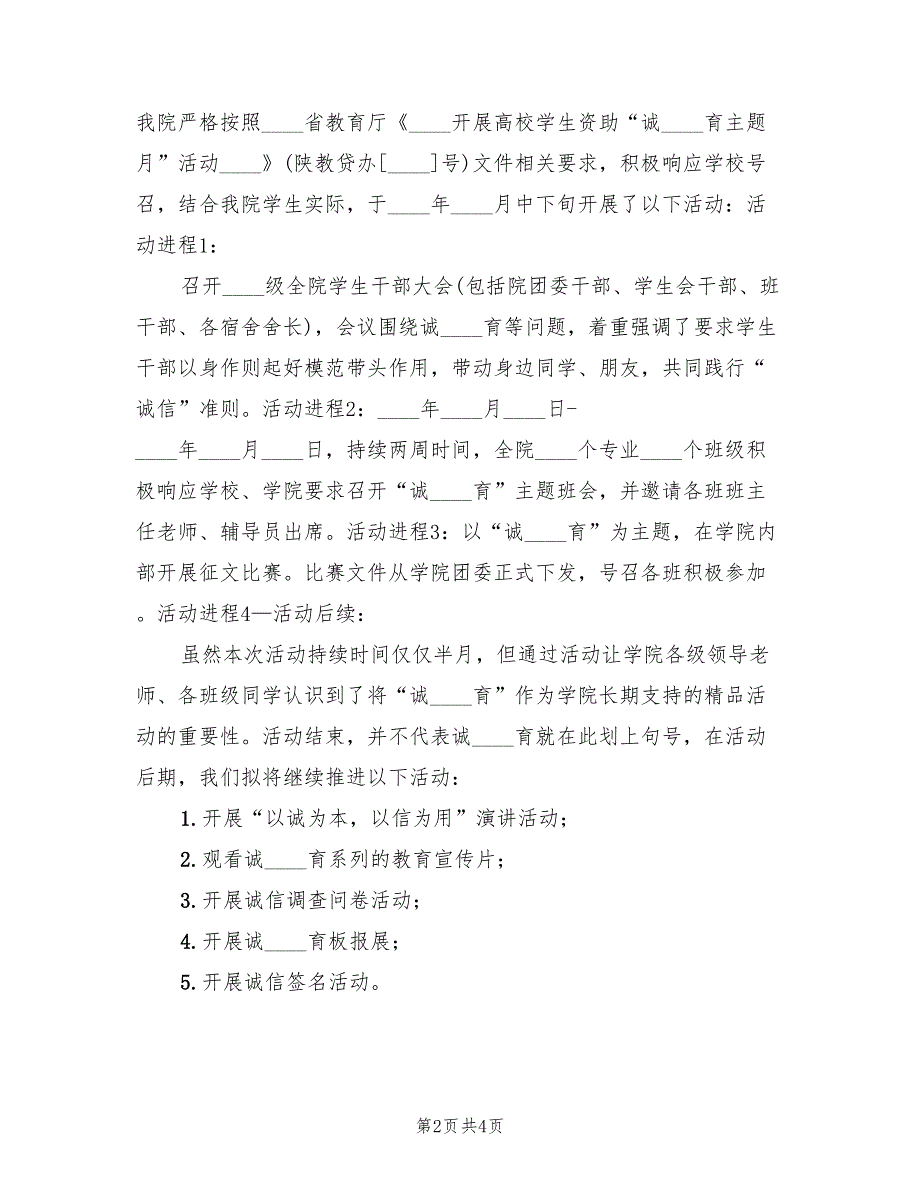 我院严格按照____省教育厅《____开展高校学生资助“诚____育主题
月”活动____》(陕教贷办[____]号)文件相关要求，积极响应学校号
召，结合我院学生实际，于____年____月中下旬开展了以下活动：活
动进程1：
召开____级全院学生干部大会(包括院团委干部、学生会干部、班
干部、各宿舍舍长)，会议围绕诚____育等问题，着重强调了要求学生
干部以身作则起好模范带头作用，带动身边同学、朋友，共同践行“
诚信”准则。活动进程2：____年____月____日-
____年____月____日，持续两周时间，全院____个专业____个班级积
极响应学校、学院要求召开“诚____育”主题班会，并邀请各班班主
任老师、辅导员出席。活动进程3：以“诚____育”为主题，在学院内
部开展征文比赛。比赛文件从学院团委正式下发，号召各班积极参加
。活动进程4—活动后续：
虽然本次活动持续时间仅仅半月，但通过活动让学院各级领导老
师、各班级同学认识到了将“诚____育”作为学院长期支持的精品活
动的重要性。活动结束，并不代表诚____育就在此划上句号，在活动
后期，我们拟将继续推进以下活动：
1.开展“以诚为本，以信为用”演讲活动；
2.观看诚____育系列的教育宣传片；
3.开展诚信调查问卷活动；
4.开展诚____育板报展；
5.开展诚信签名活动。
第2页 共4页